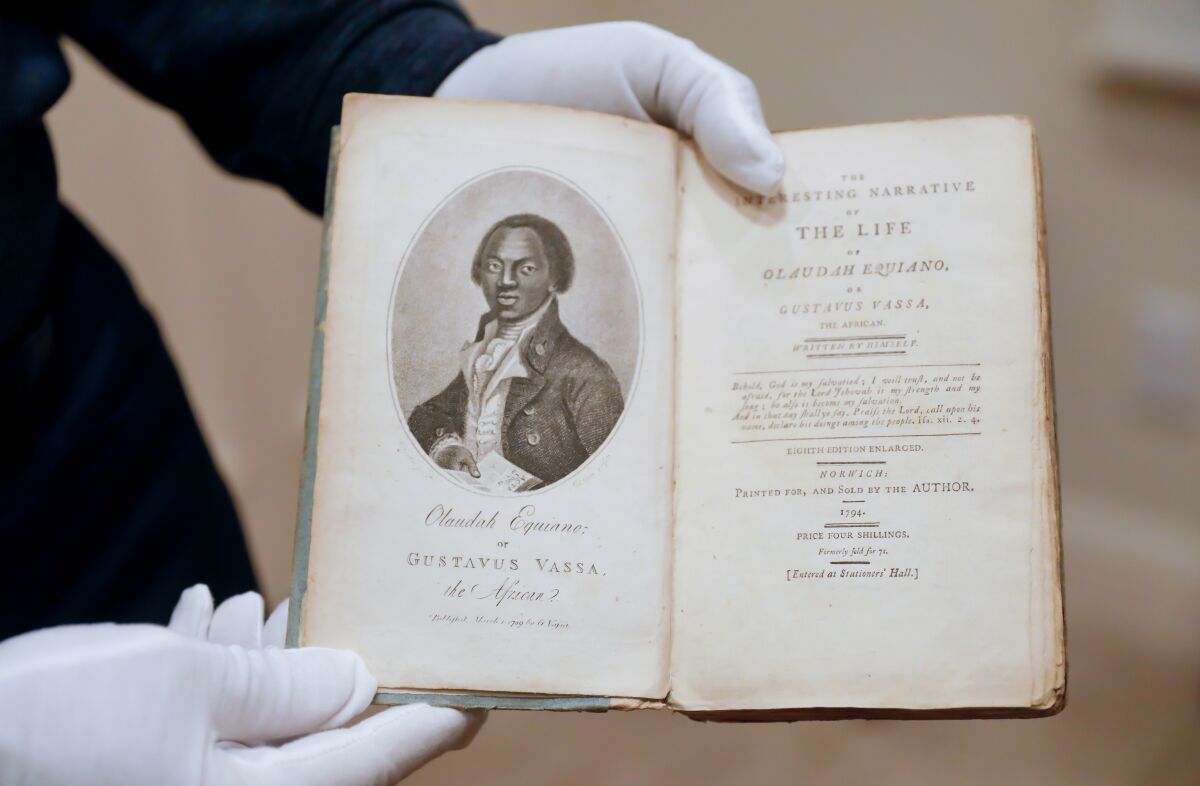 Olaudah Equiano;
or
GUSTAVUS VASSA,
the African?
Publish'd March 1 1789 by G. Vassa
THE
INTERESTING NARRATIVE
OF
THE LIFE
OF
OLAUDAH EQUIANO,
OR
GUSTAVUS VASSA,
THE AFRICAN.
WRITTEN BY HIMSELF.
Behold, God is my salvation; I will trust, and not be
afraid, for the Lord Jehovah is my strength and my
song; he also is become my salvation.
And in that day shall ye say, Praise the Lord, call upon his
name, declare his doings among the people. Isa. xii. 2. 4.
EIGHTH EDITION ENLARGED.
NORWICH:
PRINTED FOR, AND SOLD BY THE AUTHOR.
1794.
PRICE FOUR SHILLINGS.
Formerly sold for 7s.
[Entered at Stationers' Hall.]